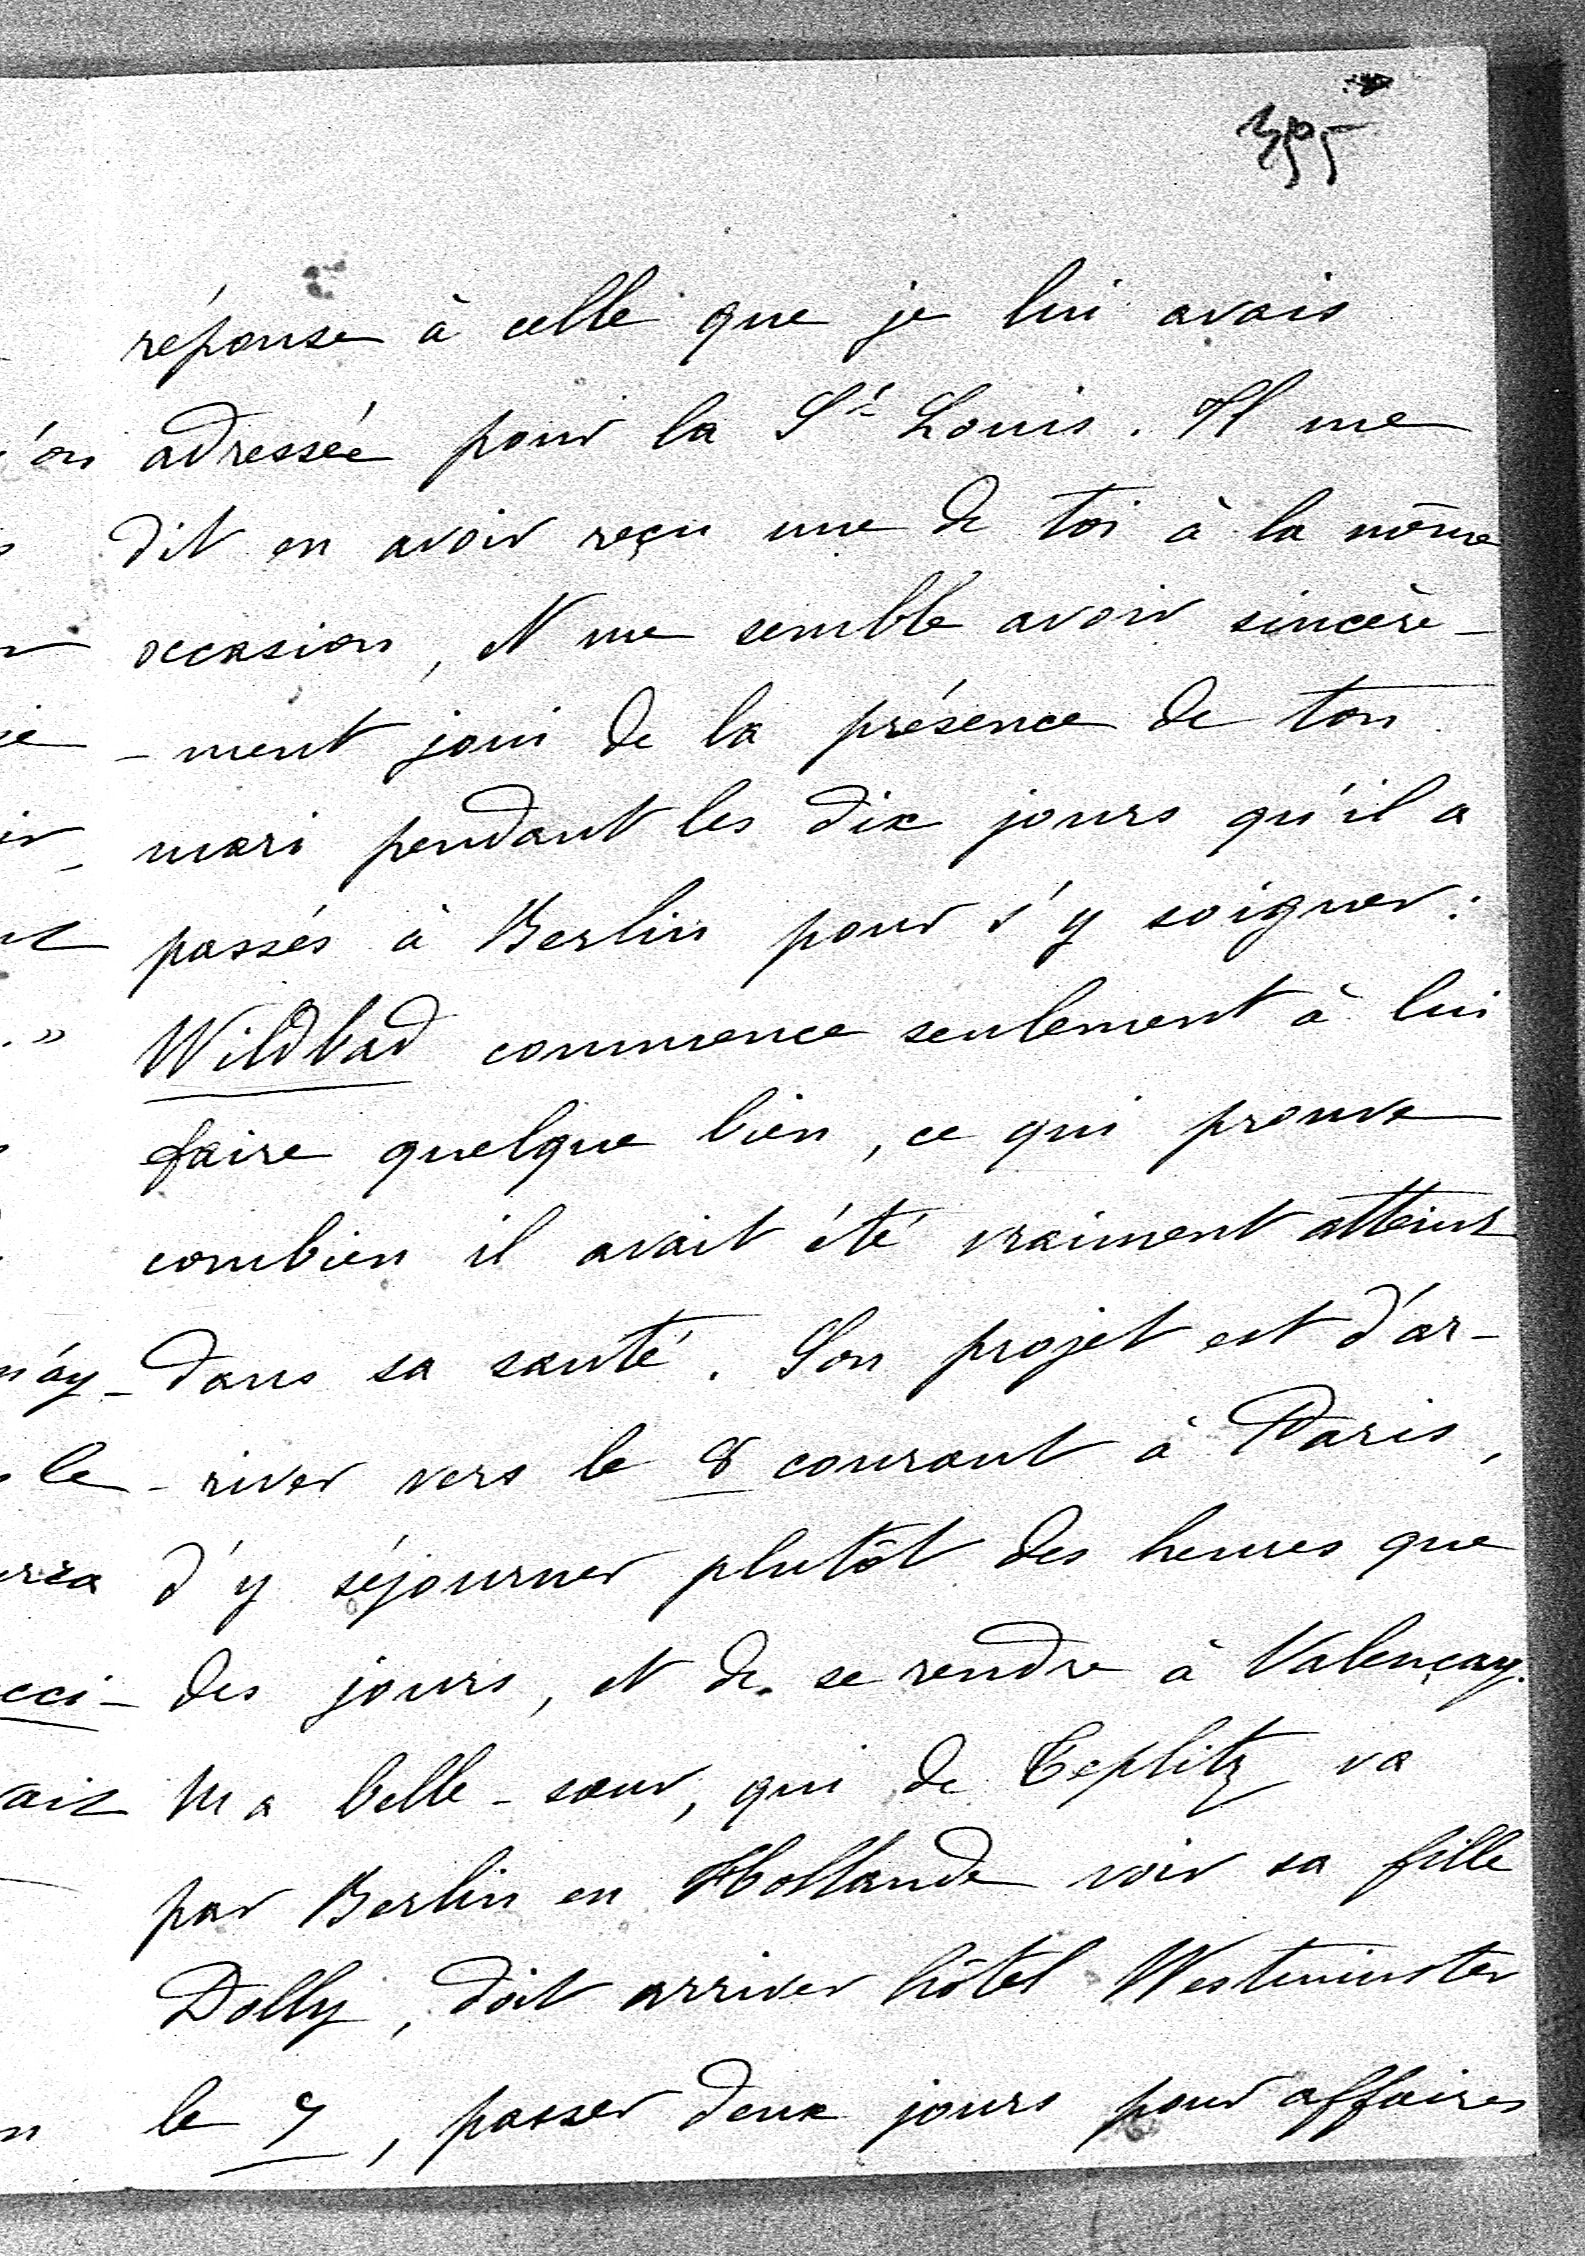 395
réponse à celle que je lui avais
adressée pour la St Louis. Il me
dit en avoir reçu une de toi à la même
occasion, et me semble avoir sincère-
-ment joui de la présence de ton
mari pendant les dix jours qu'il a
passés à Berlin pour s'y soigner:
Wildbad commence seulement à lui
faire quelque bien, ce qui prouve
combien il avait été vraiment atteint
dans sa santé. Son projet est d'ar-
-river vers le 8 courant à Paris,
d'y séjourner plutôt des heures que
des jours, et de se rendre à Valençay.
Ma belle-sœur, qui de Teplitz va
par Berlin en Hollande voir sa fille
Dolly, doit arriver hôtel Westminster
le 7, passer deux jours pour affaires